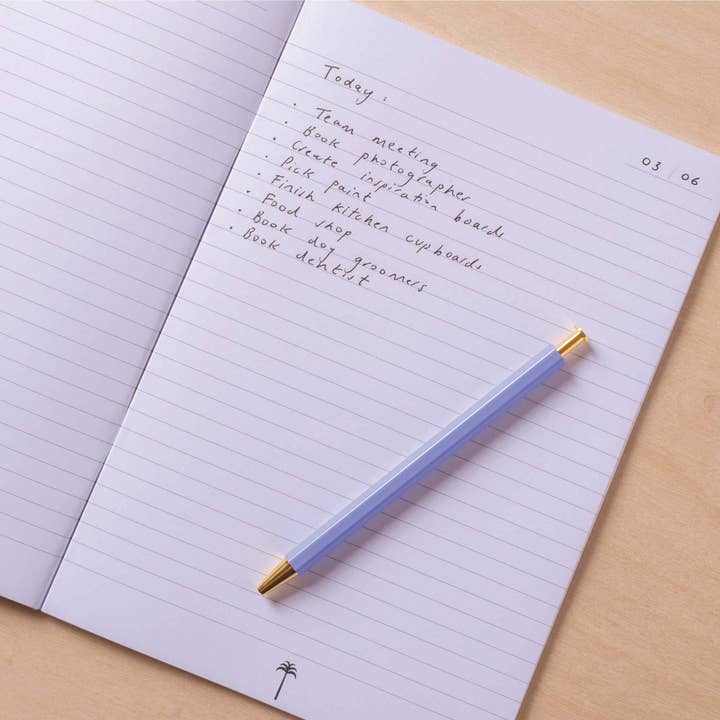 03 / 06
Today:
· Team meeting
· Book photographer
· Create inspiration boards
· Pick paint
· Finish kitchen cupboards
· Food shop
· Book dog groomers
· Book dentist